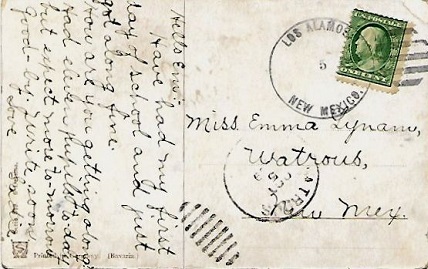 Hello Emma
Have had my first
day of school and just
got along fine.
How are you getting along
Had eleven pupils today
but expect more to-morrow
Good bye write soon
Love
LOS ALAMOS
5
NEW MEXICO.
Miss Emma Lynam,
Watrous,
New Mex.
Printed in Germany (Bavaria.)